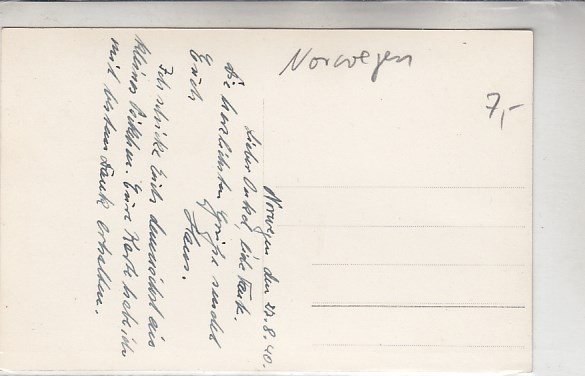 Norwegen
7,-
Norwegen den 23.8.40.
Lieber Onkel, liebe Tante.
Die herzlichsten Grüße sendet
Euch Hans.
Ich schicke Euch demnächst ein
kleines Päckchen. Eure Karte habe ich
mit bestem Dank erhalten.